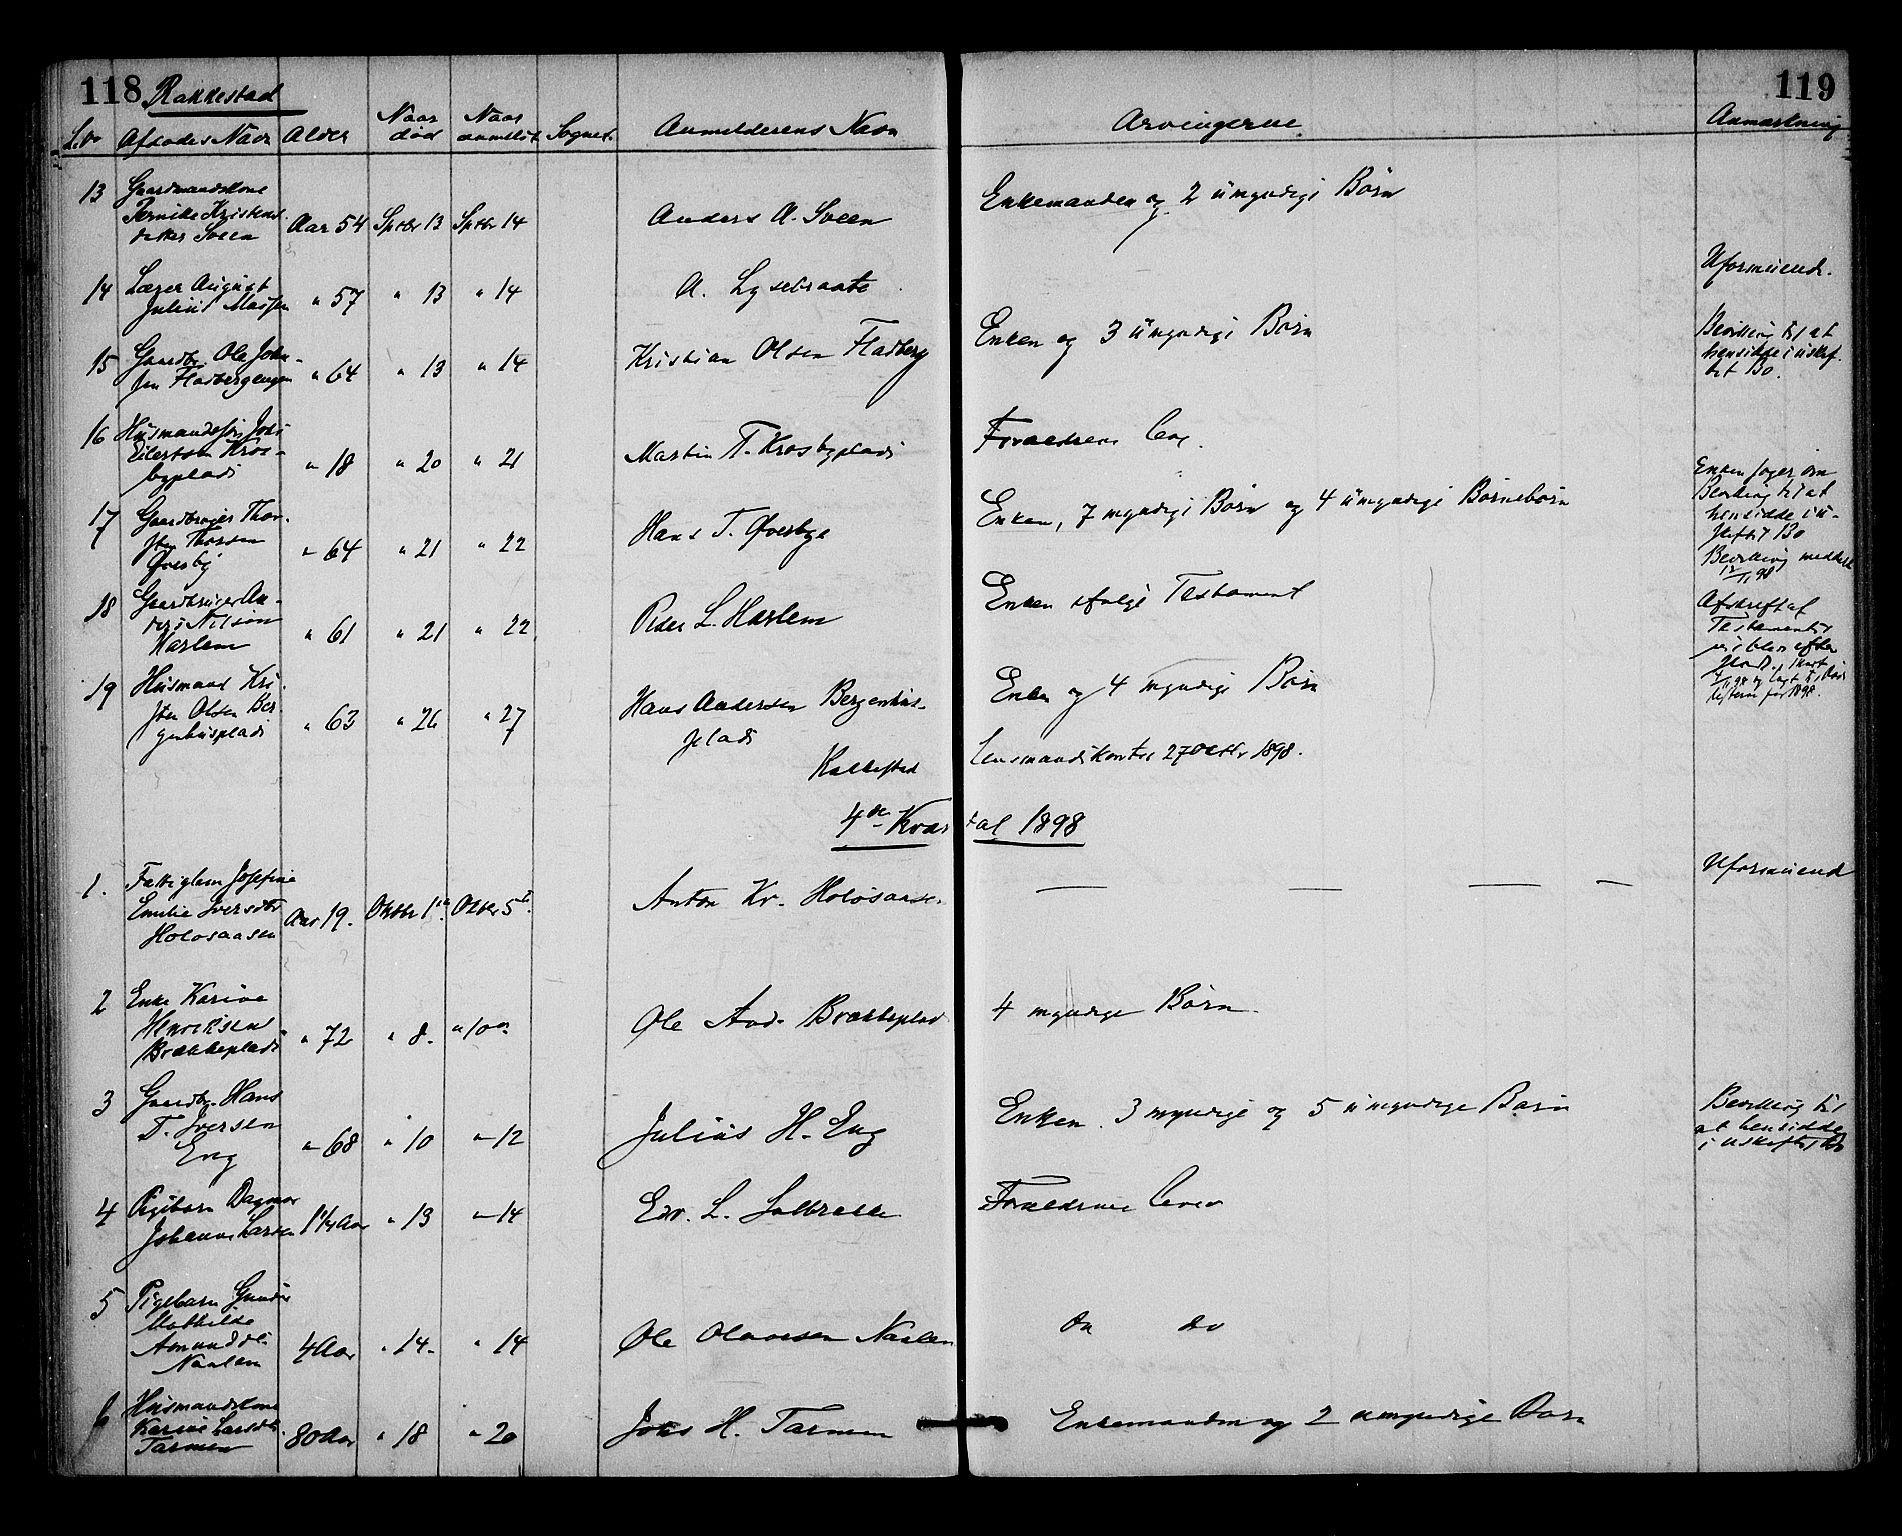 118 Rakkestad
119
L.No Afdødes Navn Alder Naar død Naar anmeldt Sognet Anmelderens Navn Arvingerne Anmærkning
13 Gaardmandskone
Pernike Kristens
datter Sveen Aar 54 Sptbr 13 Sptbr 14 Anders A. Sveen Enkemanden og 2 umyndige Børn
14 Lærer August
Julius Mass " 57 " 13 " 14 A. Lysebraate Uformuend.
15 Gaardbr. Ole Johan-
sen Fladbergengen " 64 " 13 " 14 Kristian Olsen Fladberg Enken og 3 umyndige Børn
Bevilling til at
hensidde i uskif-
tet Bo.
16 Husmandssøn Johs
Eilertsen Kros-
byplads " 18 " 20 " 21 Martin T. Krosbyplads Forældrene leve.
17 Gaardbruger Thor-
sten Thorsen
Øverby " 64 " 21 " 22 Hans T. Øverbye Enken, 7 myndige Børn og 4 umyndige Børnebørn
Enken søger om
Bevilling til at
hensidde i u-
skiftet Bo
Bevilling meddelt
18 Gaardbruger An-
ders Nilson
Harlem " 61 " 21 " 22 Peder L. Harlem Enken ifølge Testament
Afskrift af
Testamentet
19 Husmand Kri-
sten Olsen Ber-
genhusplads " 63 " 26 " 27 Hans Andersen Bergenhus-
plads Enken og 4 myndige Børn
Rakkestad Lensmandskontor 27 Oktbr 1898.
4de Kvartal 1898
1. Fattiglem Josefine
Emilie Iversdtr
Holøsaasen Aar 19. Oktbr 1ste Oktbr 5te Anton Kr. Holøsaasen — — — — Uformuend
2 Enke Karine
Henriksens
Brækkeplads " 72 " 8. " 10de Ole And. Brækkeplad 4 myndige Børn.
3 Gaardbr. Hans
T. Iversen
Eng " 68 " 10 " 12 Julius H. Eng Enken. 3 myndige og 5 umyndige Børn
Bevilling til
at hensidde
i uskiftet Bo
4 Pigebarn Dagmar
Johanne Larsen 1 1/4 Aar " 13 " 14 Edv. L. Solbrække Forældrene lever
5 Pigebarn Gunda
Mathilde
Amundsd.
Narlem 4 Aar " 14. " 14 Ole Olavesen Narlem do do
6 Husmandskone
Karine Larsdtr.
Tarmen 80 Aar " 18 " 20 Johs H. Tarmen Enkemanden og 2 umyndige Børn